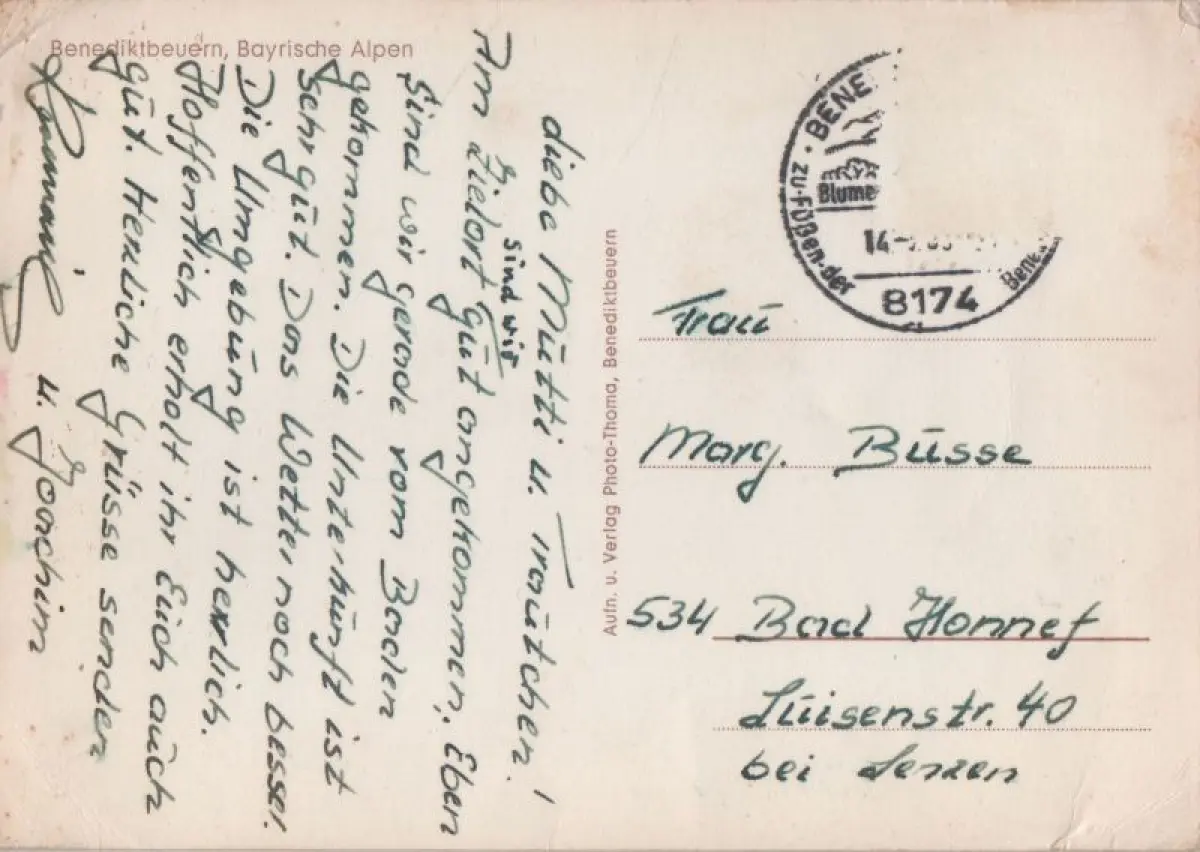 Benediktbeuern, Bayrische Alpen
Liebe Mutti u. Trautchen!
Am Zielort sind wir gut angekommen. Eben
sind wir gerade vom Baden
gekommen. Die Unterkunft ist
sehr gut. Das Wetter noch besser.
Die Umgebung ist herrlich.
Hoffentlich erholt ihr Euch auch
gut. Herzliche Grüsse senden
u. Joachim
Aufn. u. Verlag Photo-Thoma, Benediktbeuern
BENE
Blume
zu-Füßen-der
Bene
14-
8174
Frau
Marg. Busse
534 Bad Honnef
Luisenstr. 40
bei Lenzen